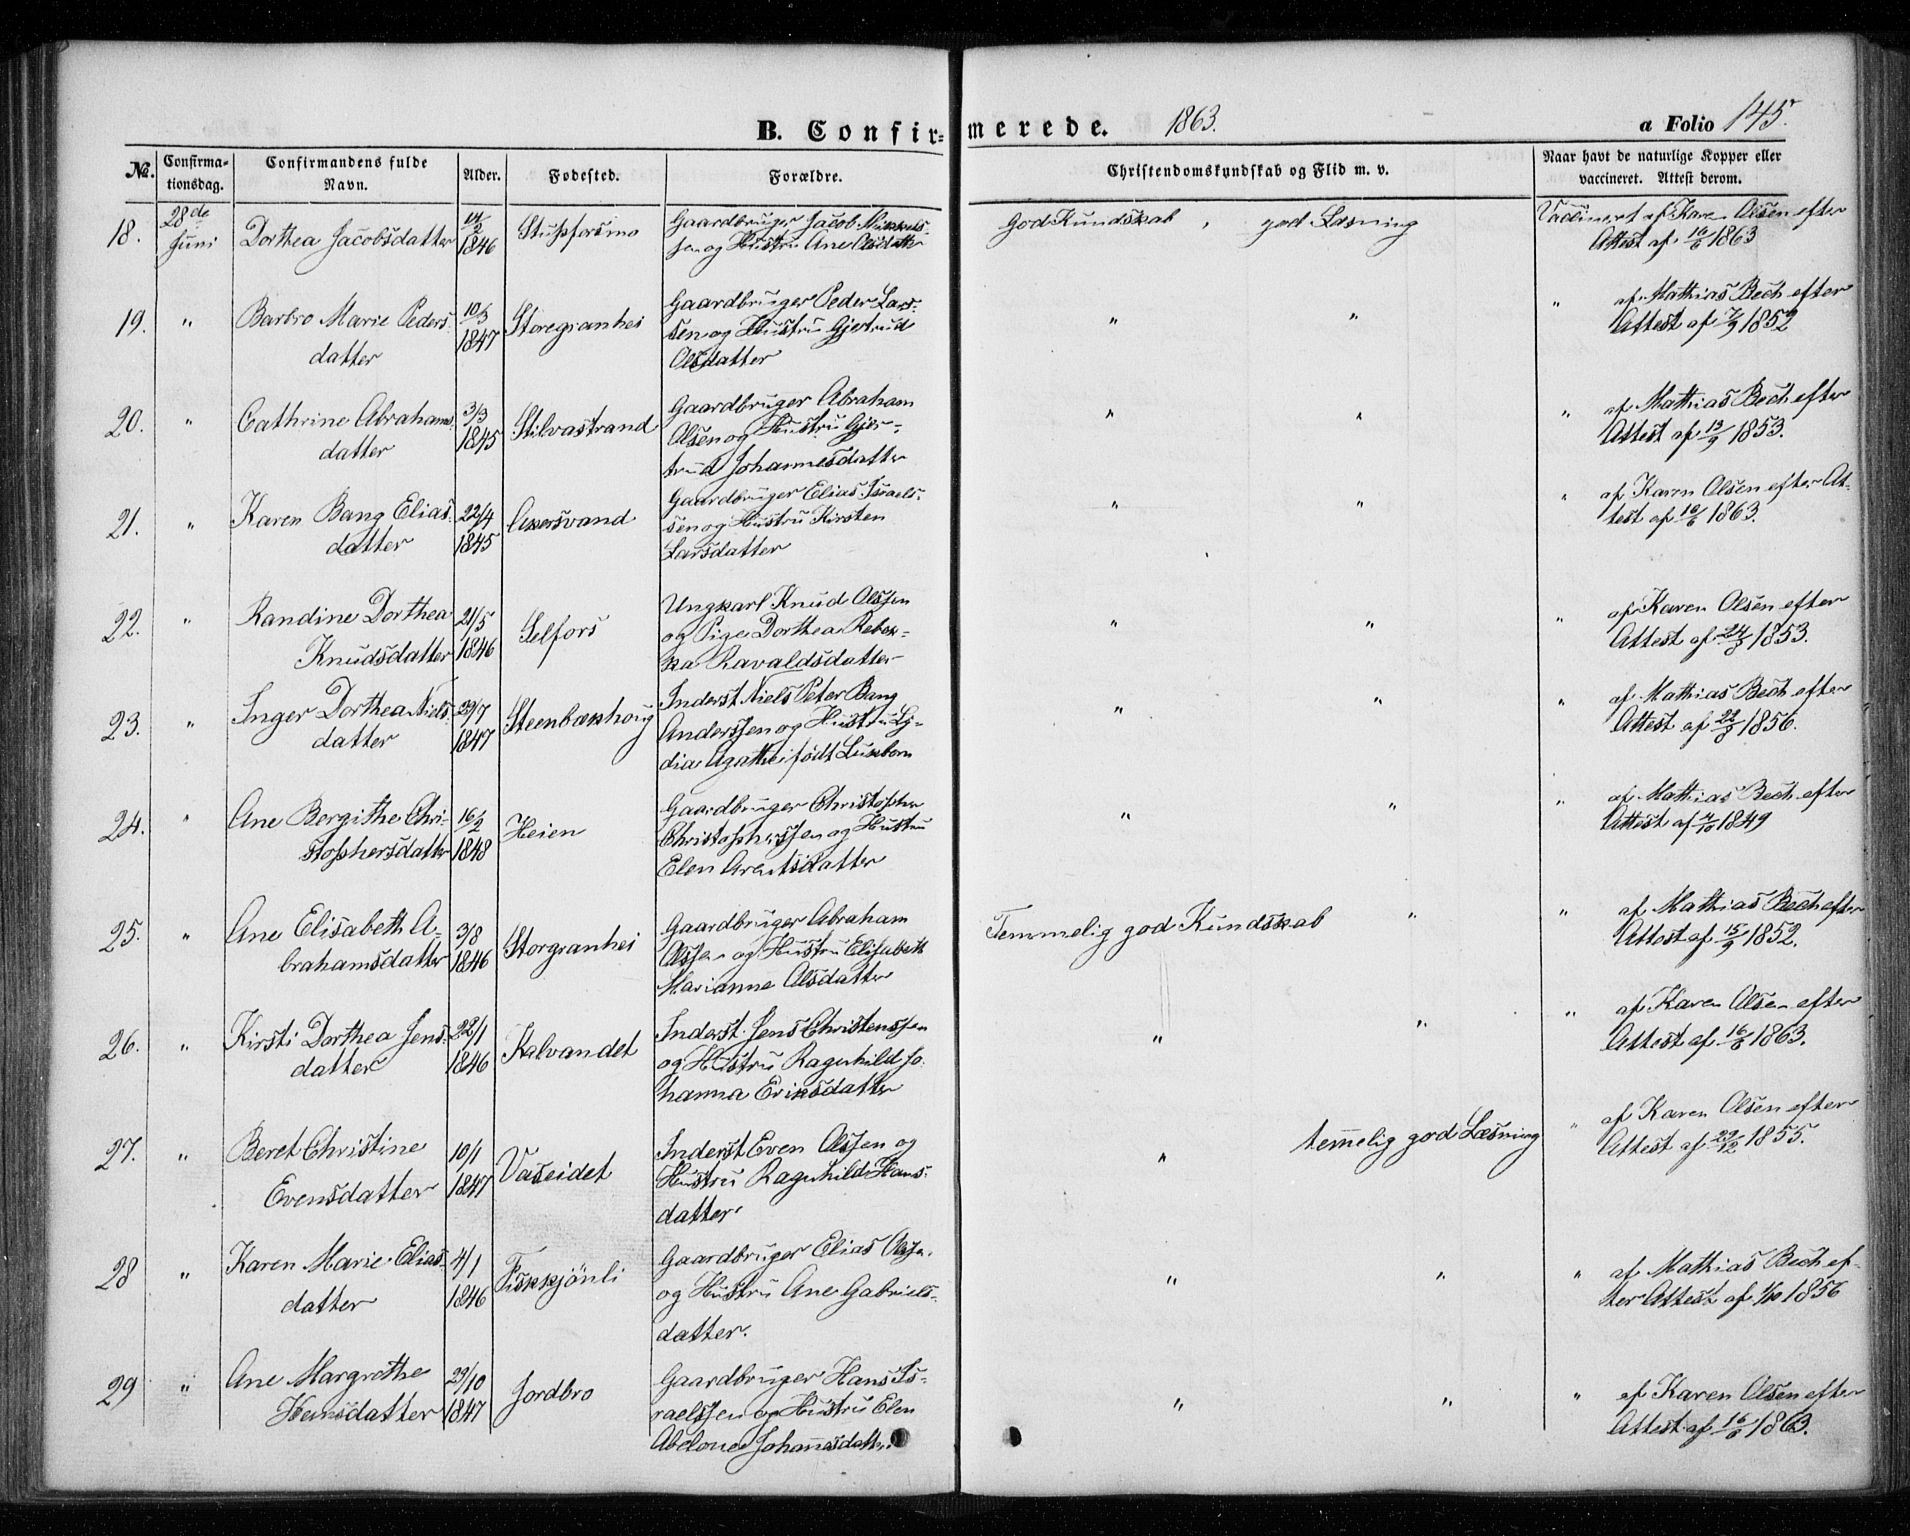 B. Confirmerede. 1863. a Folio 145.
No. Confirmationsdag. Confirmandens fulde Navn. Alder. Fødested. Forældre. Christendomskundskab og Flid m. v. Naar havt de naturlige Kopper eller vaccineret. Attest derom.
18. 28de Juni Dorthea Jacobsdatter 1846 Gaardbruger Jacob
sen og Hustru Ane Olsdatter god Kundskab, god Læsning Vaccineret af Karen Olsen efter
Attest af 16/6 1863
19. " Barbro Marie Peders- 10/5 Storegranhei Gaardbruger Peder Lars-
datter 1847 sen og Hustru Gjertrud
Olsdatter " " " af Mathias Bech efter
Attest af 7/9 1852
20. " Cathrine Abrahams- 3/3 Stilvastrand Gaardbruger Abraham
datter 1845 Olsen og Hustru Gjer-
trud Johannesdatter " " " af Mathias Bech efter
Attest af 13/9 1853.
21. " Karen Bang Elias- 22/4 Gaardbruger Elias Israels-
datter 1845 sen og Hustru Kirsten
Larsdatter " " " af Karen Olsen efter At-
test af 16/6 1863.
22. " Randine Dorthea 21/5 Selfors Ungkarl Knud Olssen
Knudsdatter 1846 og Pige Dorthea Rebek-
ka Ravaldsdatter " " " af Karen Olsen efter
Attest af 24/8 1853.
23. " Inger Dorthea Niels- 29/7 Steenbækhoug Inderst Niels Peter Bang
datter 1847 Anderssen og Hustru Ly-
dia Agathe født " " " af Mathias Bech efter
Attest af 22/8 1856.
24. " Ane Bergithe Chri- 16/2 Heien Gaardbruger Christopher
stophersdatter 1848 Christophersen og Hustru
Elen Arentsdatter " " " af Mathias Bech efter
Attest af 1849
25. " Ane Elisabeth A- 3/8 Storgranhei Gaardbruger Abraham
brahamsdatter 1846 Olssen og Hustru Elisabeth
Marianne Olsdatter Temmelig god Kundskab " " af Mathias Bech efter
Attest af 15/9 1852.
26. " Kirsti Dorthea Jens- 22/1 Kalvandet Inderst Jens Christenssen
datter 1846 og Hustru Ragnhild Jo-
hanna Eriksdatter " " " af Karen Olsen efter
Attest af 16/6 1863.
27. " Beret Christine 10/1 Vaseidet Inderst Even Olssen og
Evensdatter 1847 Hustru Ragnhild Hans-
datter " temmelig god Læsning " af Karen Olsen efter
Attest af 29/12 1855.
28 " Karen Marie Elias- 4/1 Fiskkjönli Gaardbruger Elias Olssen
datter 1846 og Hustru Ane Gabriels-
datter. " " " af Mathias Bech ef-
ter Attest af 1/10 1856
29 " Ane Margrethe 29/10 Jordbro Gaardbruger Hans Is-
Hansdatter 1847 raelssen og Hustru Elen
Abelone Johannesdatter " " " af Karen Olsen efter
Attest af 16/6 1863.